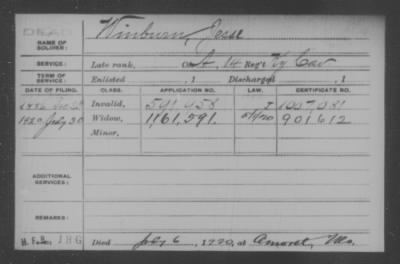 DEAD
NAME OF SOLDIER: Winburn, Jesse
SERVICE: Late rank, Co. A, 14 Reg't Ky Cav
TERM OF SERVICE: Enlisted , 1 Discharged , 1
DATE OF FILING. CLASS. APPLICATION NO. LAW. CERTIFICATE NO.
1886 Invalid, 591,458 1007,031
1920 July 30 Widow, 1,161,591. 901612
Minor,
ADDITIONAL SERVICES:
REMARKS:
Died July 6, 1920, at Amoret, Mo.